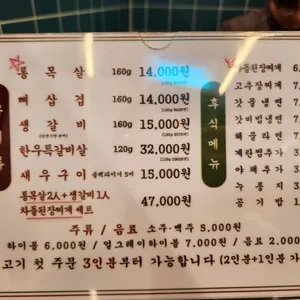 통목살 160g 14,000원
뼈삼겹 160g 14,000원
생갈비 160g 15,000원
한우특갈비살 120g 32,000원
새우구이 블랙타이거 5미 15,000원
통목살2人+생갈비1人
차돌된장찌개 세트 47,000원
후식메뉴
차돌된장찌개
고추장찌개
갓물냉면
갓비빔냉면
해물라면
계란찜추가
야채추가
누룽지
공기밥
주류 / 음료 소주·맥주 5,000원
하이볼 6,000원 / 얼그레이하이볼 7,000원 / 음료 2,000
고기 첫 주문 3인분부터 가능합니다 (2인분+1인분 가